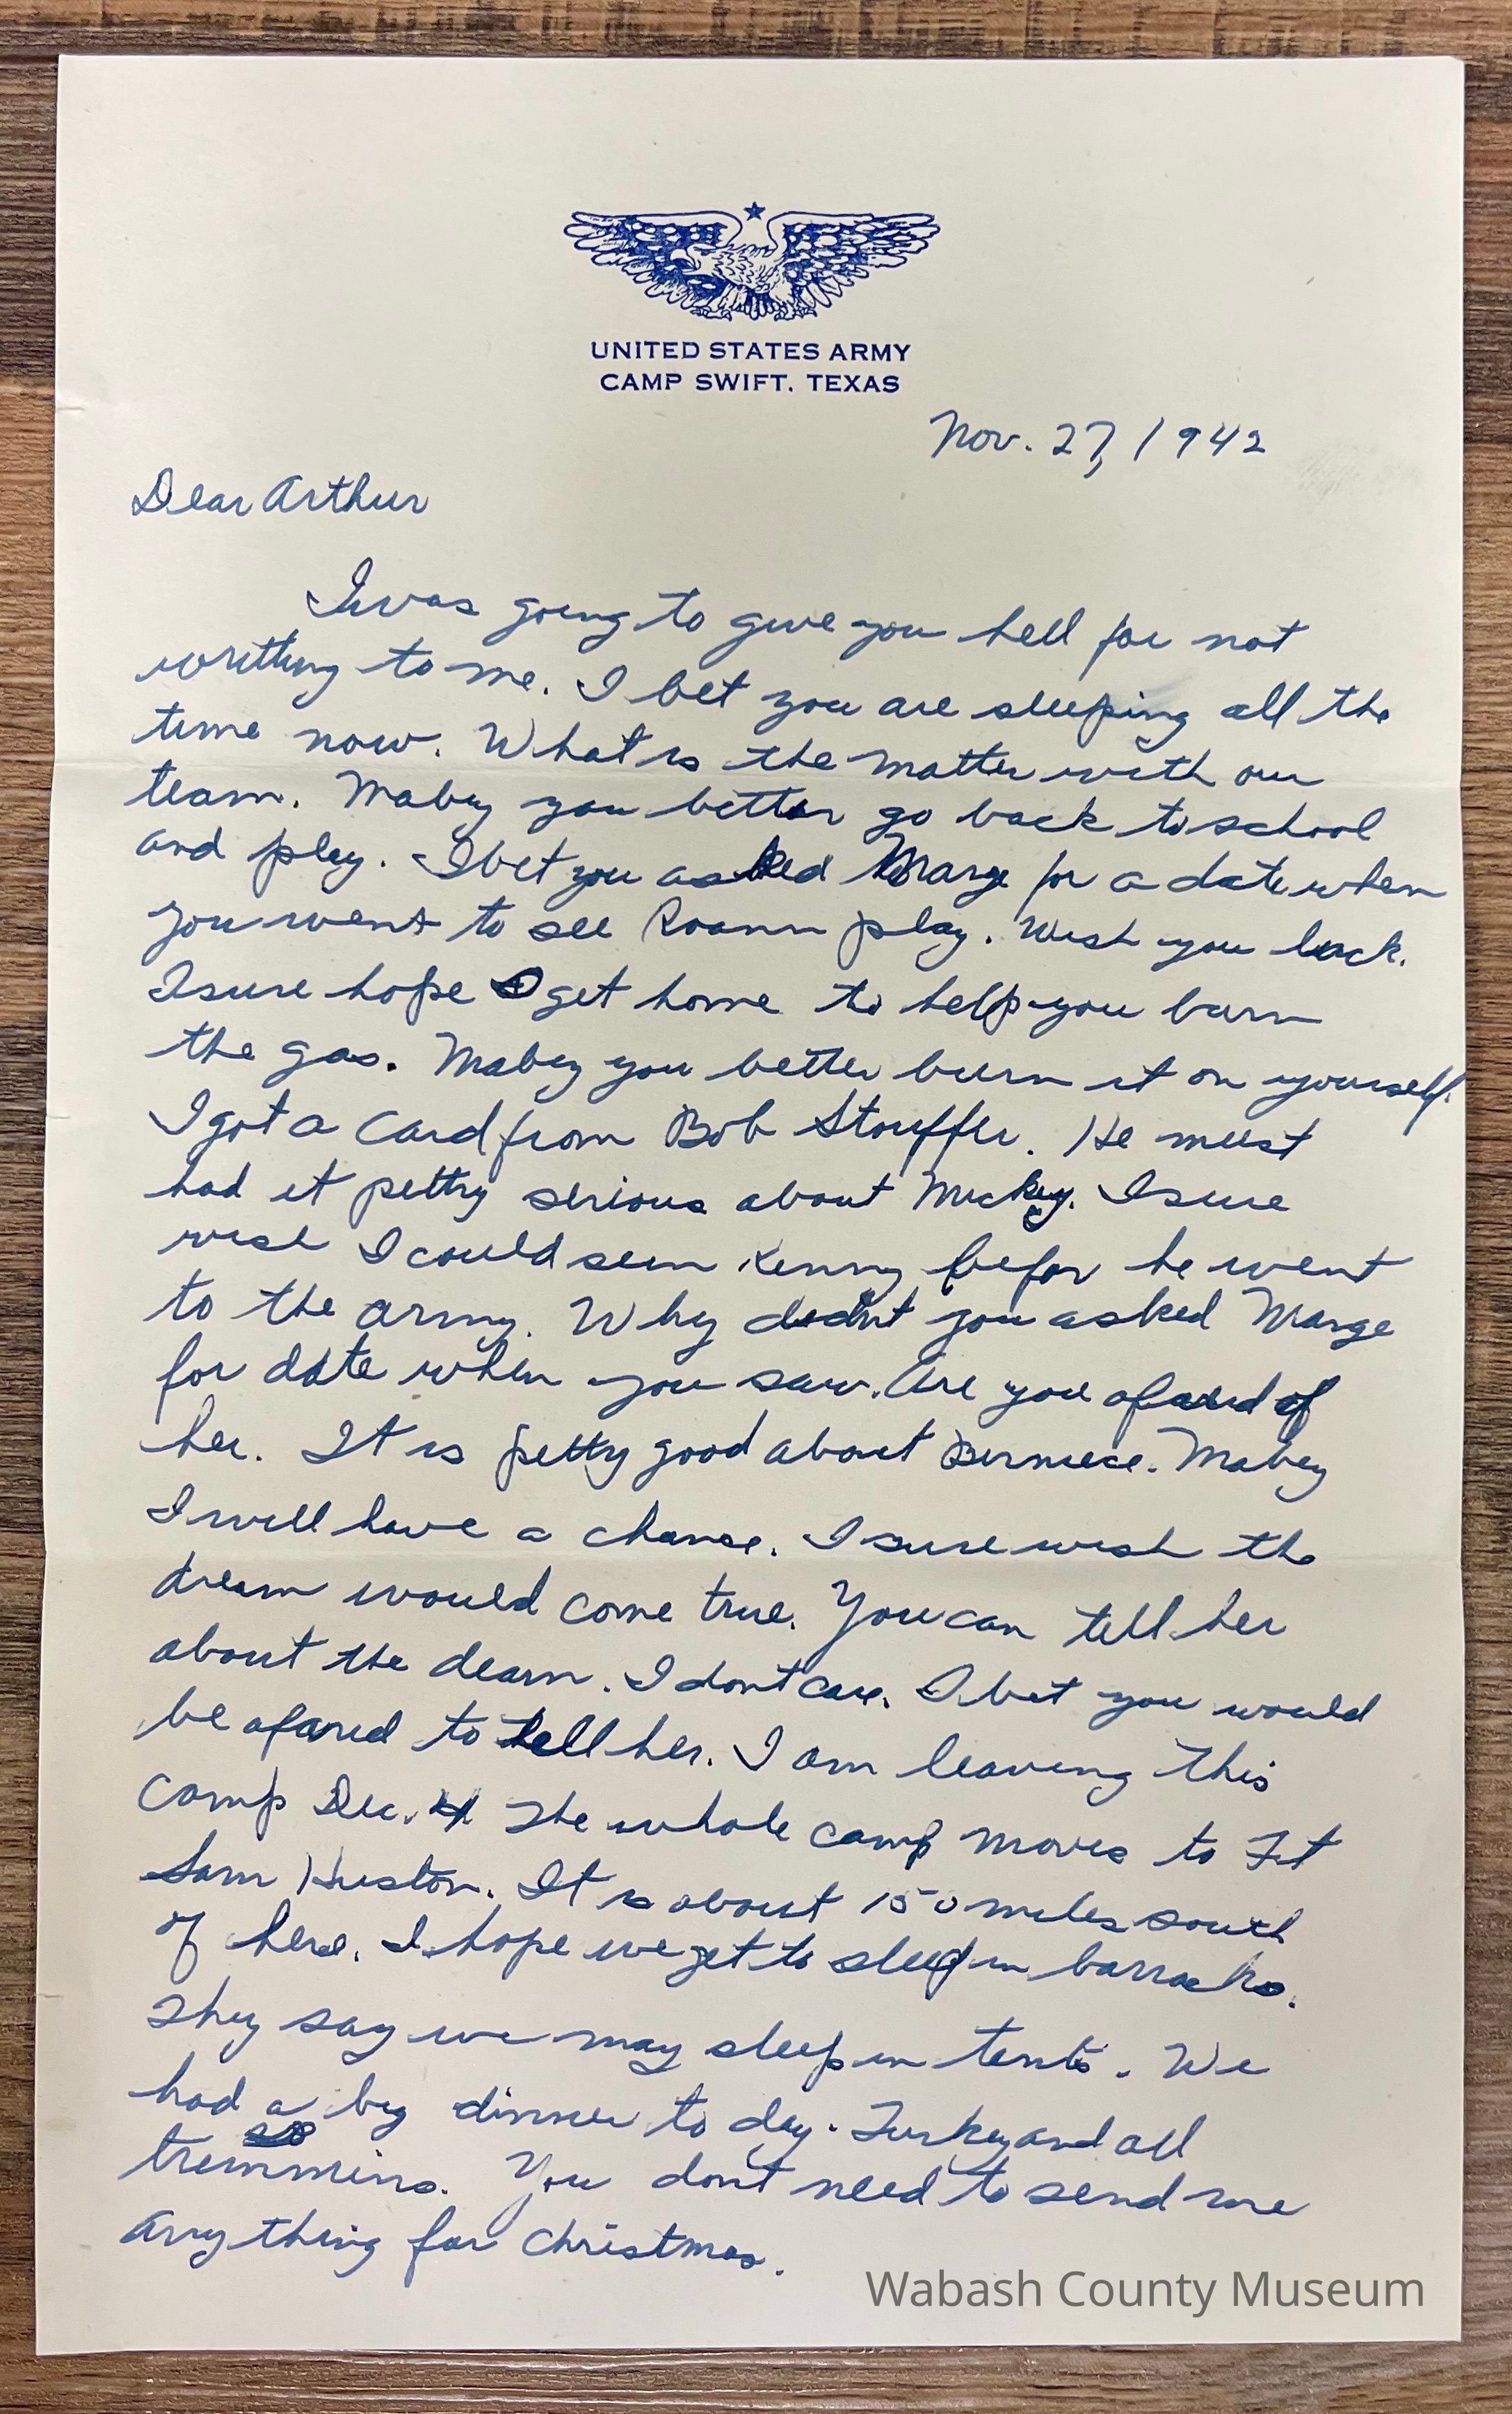 UNITED STATES ARMY
CAMP SWIFT, TEXAS
Nov. 27, 1942
Dear Arthur
I was going to give you hell for not
writting to me. I bet you are sleeping all the
time now. What is the matter with our
team. Mabey you better go back to school
and play. I bet you asked Marge for a date when
you went to see Roann play. Wish you luck.
I sure hope I get home to help you burn
the gas. Mabey you better burn it on yourself.
I got a card from Bob Stouffer. He must
had it pettry serious about Mickey. I sure
wish I could seen Kenny befor he went
to the army. Why didnt you asked Marge
for date when you saw. Are you afarid of
her. It is petty good about Berniece. Mabey
I will have a chance. I sure wish the
dream would come true. You can tell her
about the dearm. I dont care. I bet you would
be afaried to tell her. I am leaving this
camp Dec. 4 The whole camp moves to Ft
Sam Huston. It is about 150 miles south
of here. I hope we get to sleep in barracks.
They say we may sleep in tents. We
had a big dinner to day. Turkey and all
tremmins. You dont need to send me
anything for Christmas.
Wabash County Museum